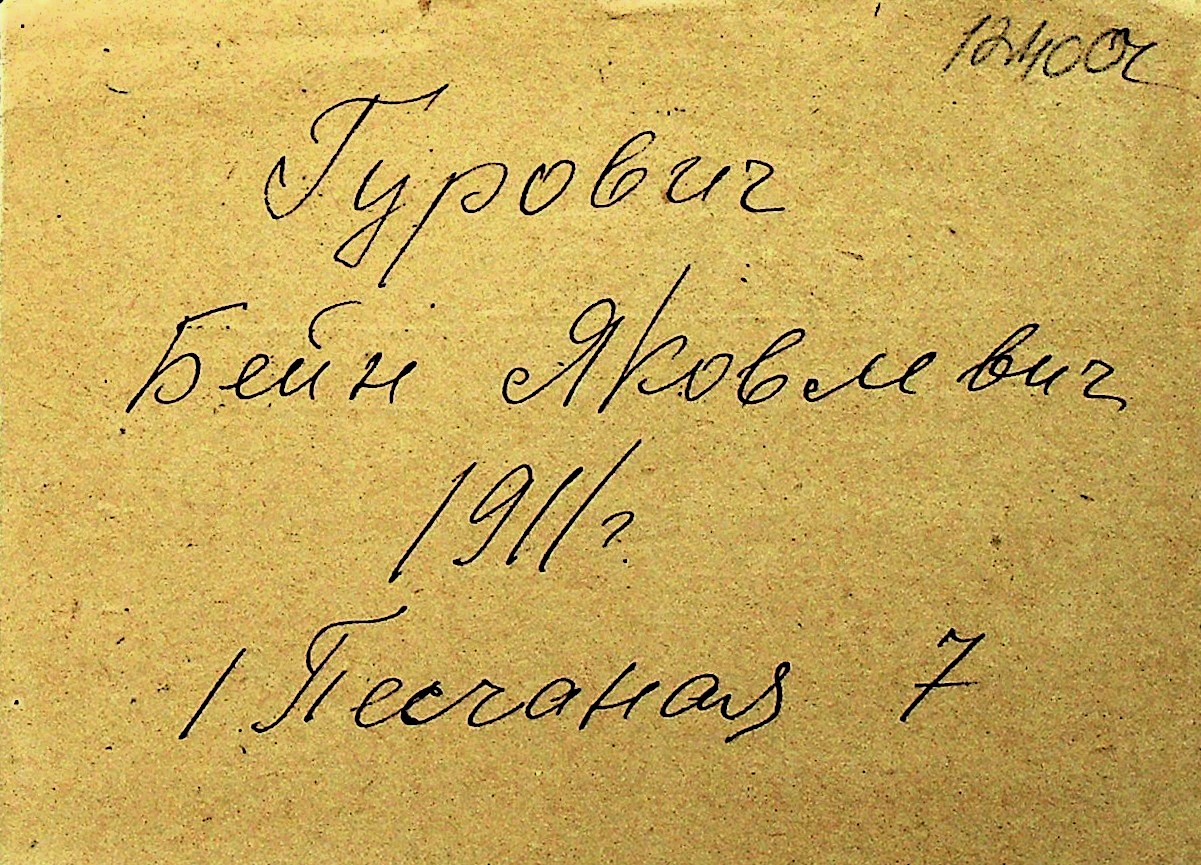 Гурович
Бейн Яковлевич
1911г.
1 Песчаная 7